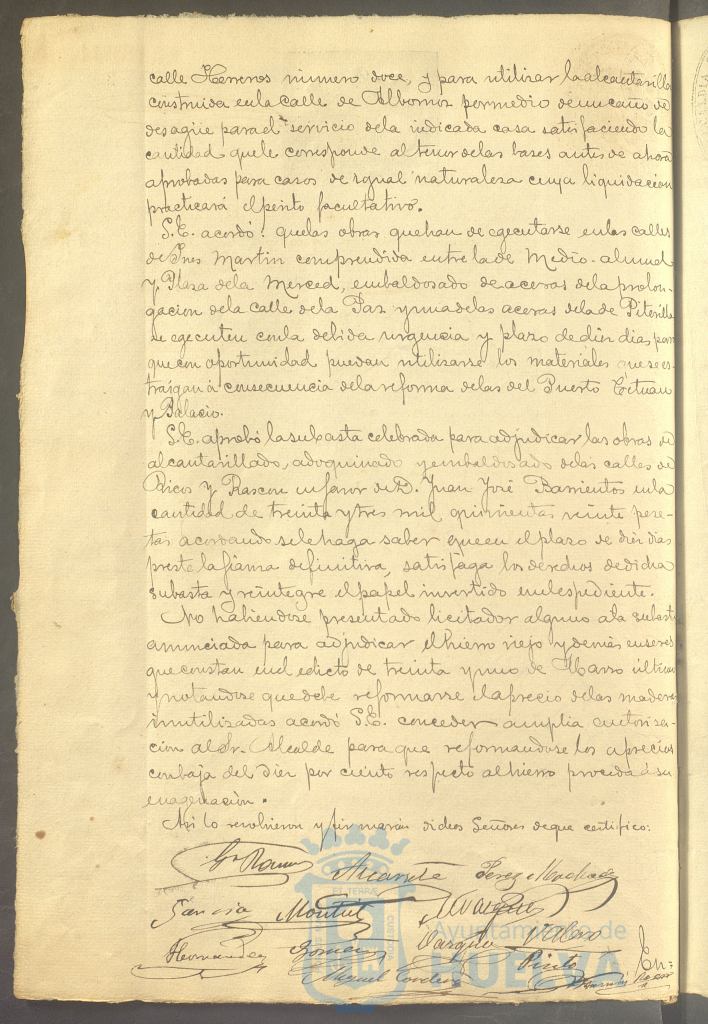 calle Herreros número doce, y para utilizar la alcantarilla
construida en la calle de Albornoz por medio de un caño de
desagüe para el servicio de la indicada casa satisfaciendo la
cantidad que le corresponde al tenor de las bases antes de ahora
aprobadas para casos de igual naturaleza cuya liquidacion
practicará el perito facultativo.
S.E. acordó: que las obras que han de egecutarse en las calles
de Ynes Martin comprendida entre la de Medio-almud
y Plaza de la Merced, embaldosado de aceras de la prolon-
gacion de la calle de la Paz y una de las aceras de la de Piterilla
se egecuten con la debida urgencia y plazo de diez dias para
que con oportunidad puedan utilizarse los materiales que se es-
traigan á consecuencia de la reforma de las del Puerto Tetuan
y Palacio.
S.E. aprobó la subasta celebrada para adjudicar las obras de
alcantarillado, adoquinado y embaldosado de las calles de
Ricos y Rascon en favor de D. Juan José Barrientos en la
cantidad de treinta y tres mil quinientas veinte pese-
tas acordando se le haga saber que en el plazo de diez dias
preste la fianza definitiva, satisfaga los derechos de dicha
subasta y reintegre el papel invertido en el espediente.
No habiendose presentado licitador alguno a la subasta
anunciada para adjudicar el hierro viejo y demás enseres
que constan en el edicto de treinta y uno de Marzo último
y notandose que debe reformarse el aprecio de las maderas
inutilizadas acordó S.E. conceder amplia autoriza-
ción al Sr. Alcalde para que reformandose los aprecios
con baja del diez por ciento respecto al hierro proceda á su
enagenación.
Asi lo resolvieron y firmarán dichos Señores de que certifico:
Garcia Montiel Vazquez
Hernandez Gomez Vargas
Miguel Cordero Pinto
Ayuntamiento de
HUELVA